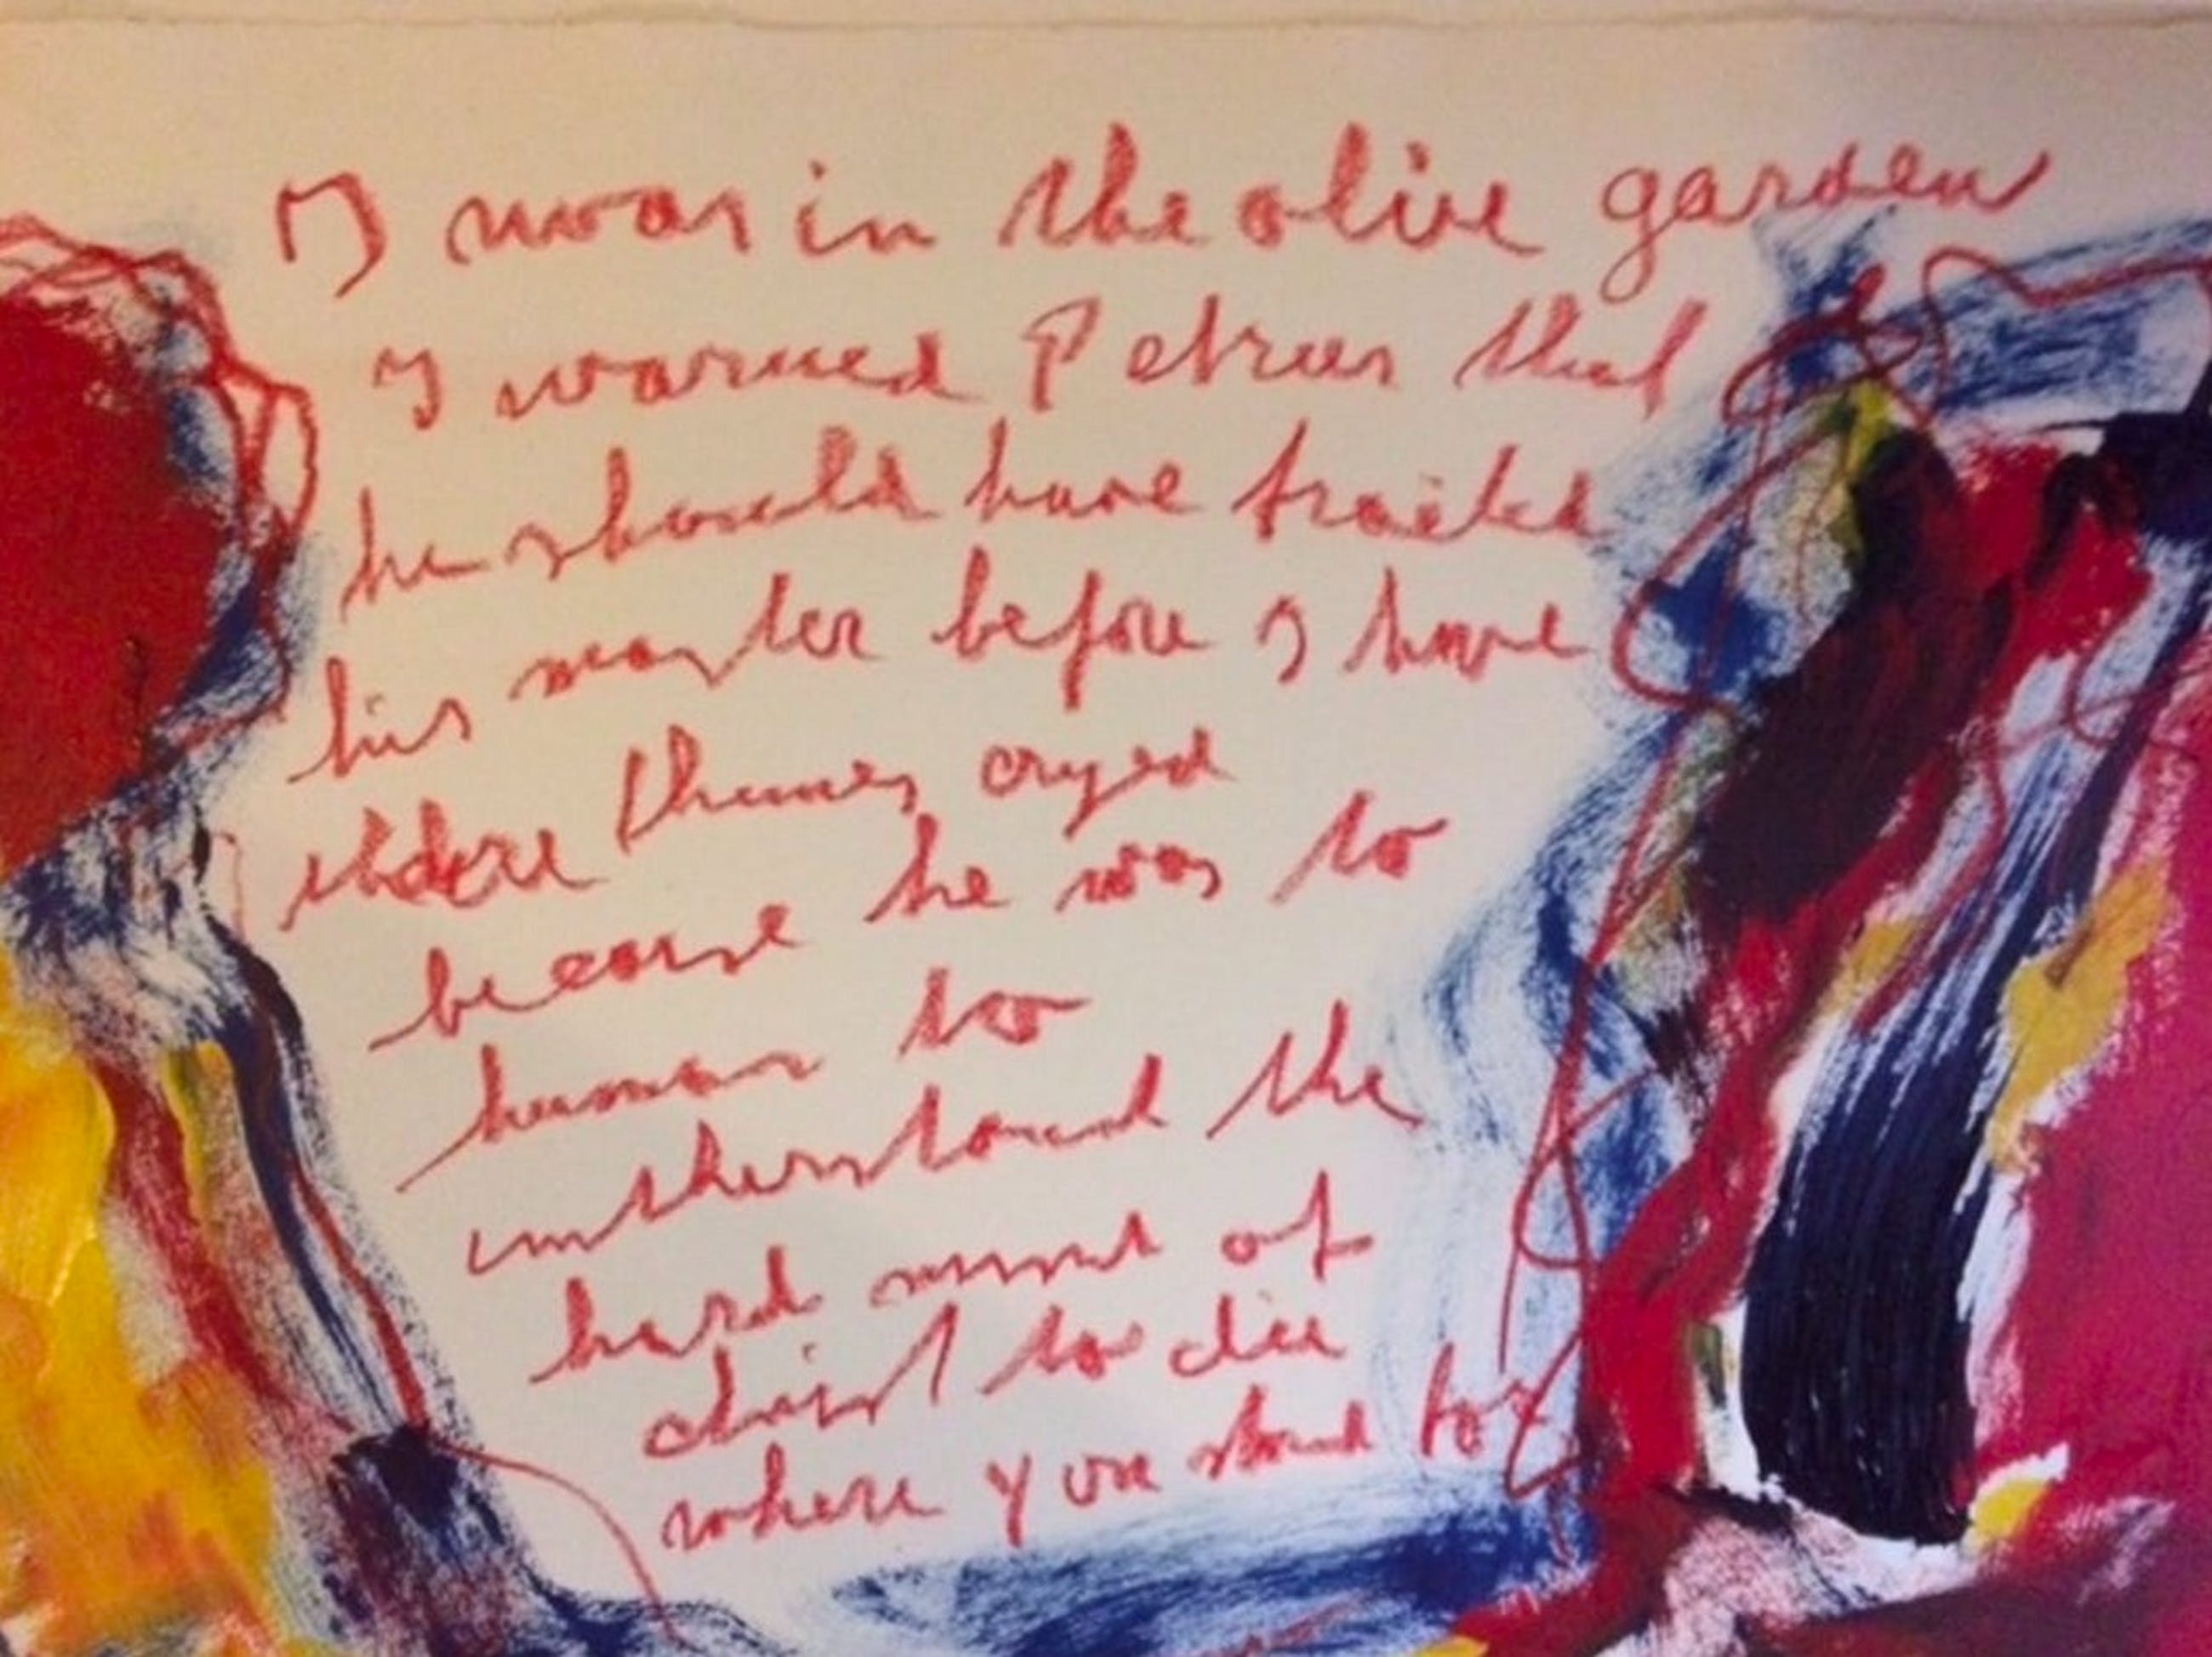 I was in the olive garden
I warned Petrus that
he should have traited
his master before I have
thre thimes cryed
becaurse he was to
human to
untherstand the
hard mind of
christ to die
where you stand for